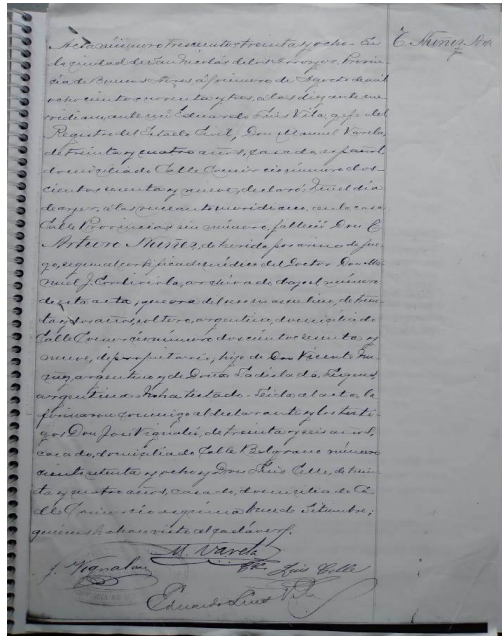 Acta número trescientos treinta y ocho. En
la ciudad de San Nicolás de los Arroyos, Provin-
cia de Buenos Aires, a primero de Agosto de mil
ochocientos noventa y tres, a las diez ante me-
ridiano, ante mí Eduardo Luis Vila, Gefe del
Registro del Estado Civil, Don Manuel Varela,
de treinta y cuatro años, casado, español,
domiciliado Calle Comercio número dos-
cientos y nueve, declaró: Que el día
de ayer, a las ante meridiano, en la casa
Calle Provincias sin número, falleció Don E.
Arturo Nuñez, de herida por arma de fue-
go, según el certificado médico del Doctor Don Ma-
nuel J. archivado bajo el número
de esta acta; que era del sexo masculino, de trein-
ta y años, soltero, argentino, domiciliado
Calle Comercio número doscientos y
nueve, propietario, hijo de Don Vicente Nu-
ñez, argentino y de Doña Ladislada
argentina. No ha testado. Leída el acta la
firmaron conmigo el declarante y los testi-
gos Don José Vignalu, de treinta y seis años,
casado, domiciliado Calle Belgrano número
ciento setenta y ocho y Don Luis Celle, de trein-
ta y cuatro años, casado, domiciliado Ca-
lle Comercio esquina Nueve de Setiembre;
quienes han visto el cadáver.
M. Varela
J. Vignalu
Luis Celle
Eduardo Luis Vila
E. Nuñez